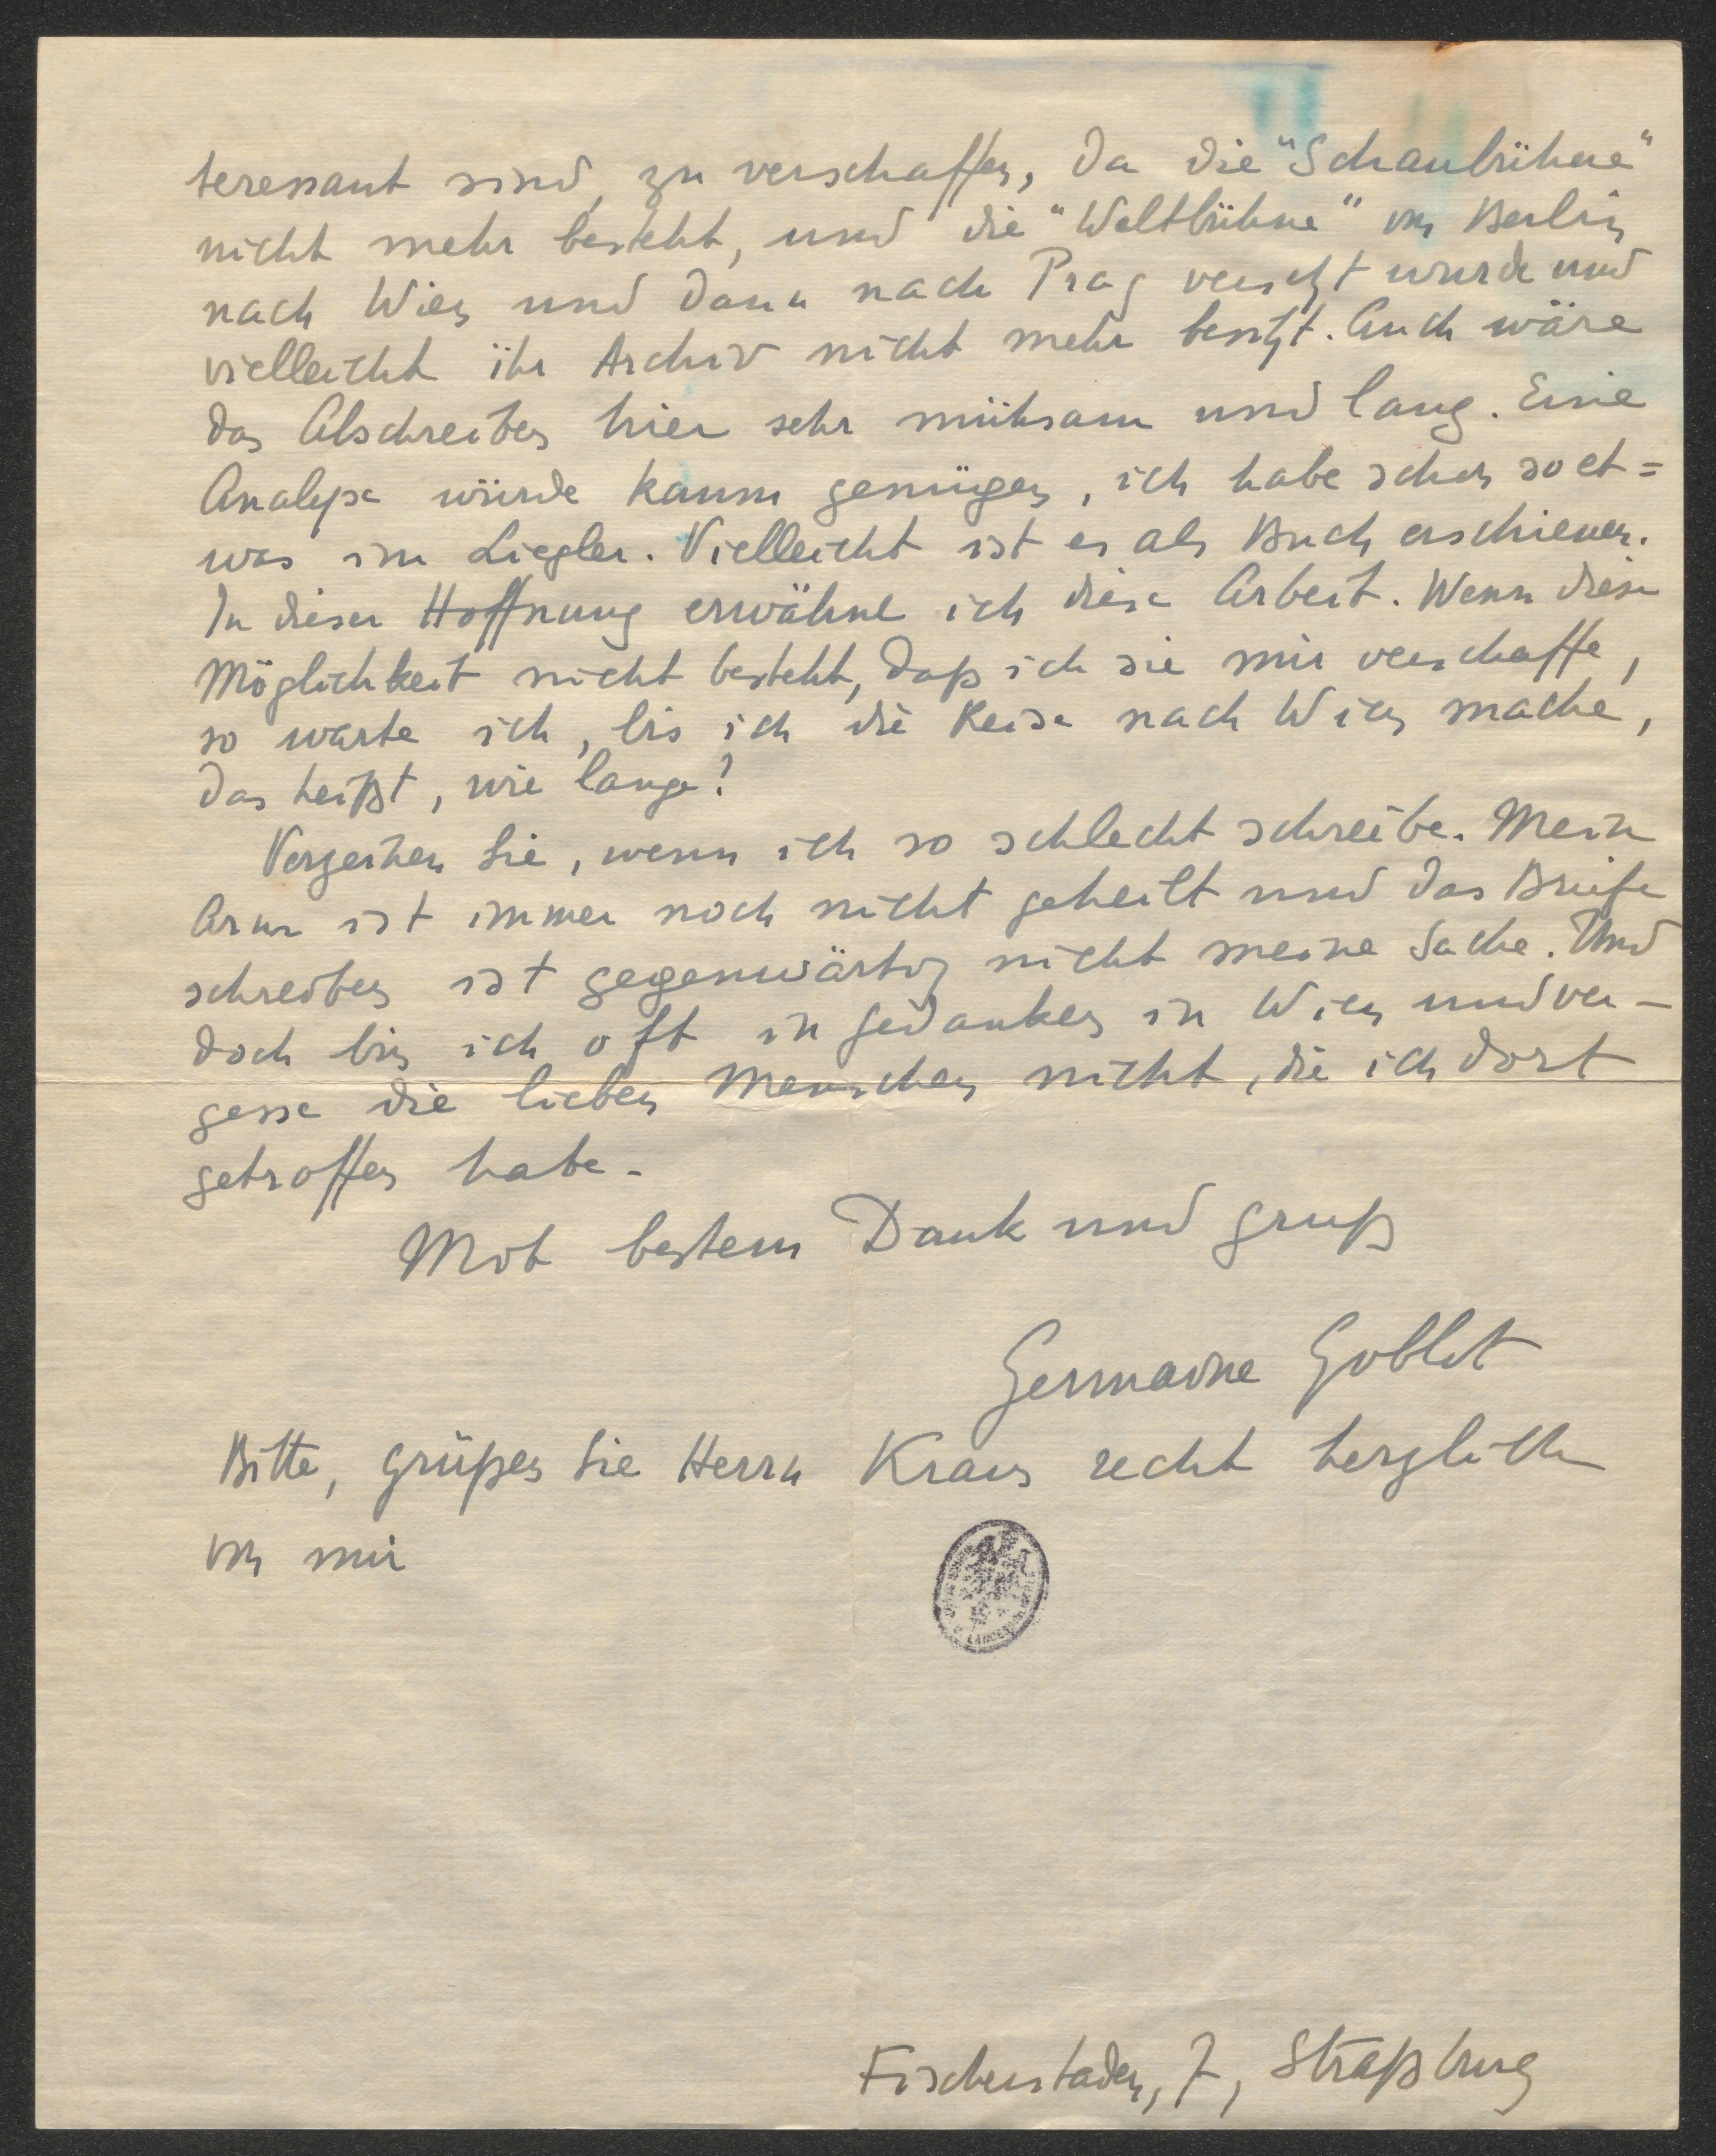 teressant sind, zu verschaffen, da die "Schaubühne"
nicht mehr besteht, und die "Weltbühne" von Berlin
nach Wien und dann nach Prag versetzt wurde und
vielleicht ihr Archiv nicht mehr besitzt. Auch wäre
das Abschreiben hier sehr mühsam und lang. Eine
Analyse würde kaum genügen, ich habe schon so et=
was im Liegler. Vielleicht ist es als Buch erschienen.
In dieser Hoffnung erwähne ich diese Arbeit. Wenn diese
Möglichkeit nicht besteht, daß ich sie mir verschaffe,
so warte ich, bis ich die Reise nach Wien mache,
das heißt, wie lange?
Verzeihen Sie, wenn ich so schlecht schreibe. Mein
Arm ist immer noch nicht geheilt und das Briefe
schreiben ist gegenwärtig nicht meine Sache. Und
doch bin ich oft in Gedanken in Wien und ver-
gesse die lieben Menschen nicht, die ich dort
getroffen habe.
Mit bestem Dank und Gruß
Germaine Goblot
Bitte, grüßen Sie Herrn Kraus recht herzlich
von mir
Fischerstaden, 7, Straßburg